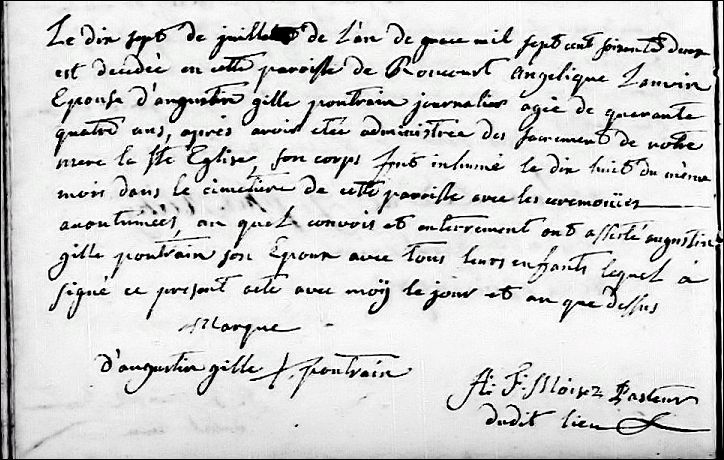 Le dix sept de juillet de L'an de grace mil sept cent soixante deux
est decedée en cette paroisse de Roucourt Angelique Lanvin
Epouse d'augustin gille pontrain journalier agée de quarante
quatre ans, après avoir etée administrée des sacrement de notre
mere la Ste Eglise, son corps fut inhumé le dix huit du même
mois dans le cimetiere de cette paroisse avec les ceremoniies
acoutumées, au quel convois et enterrement ont assisté augustin
gille pontrain son Epoux avec tous leurs enffants lequel à
signé ce present acte avec moÿ le jour et an que dessus
Marque
d'augustin gille X pontrain
A: F: Moisez Pasteur
dudit lieu